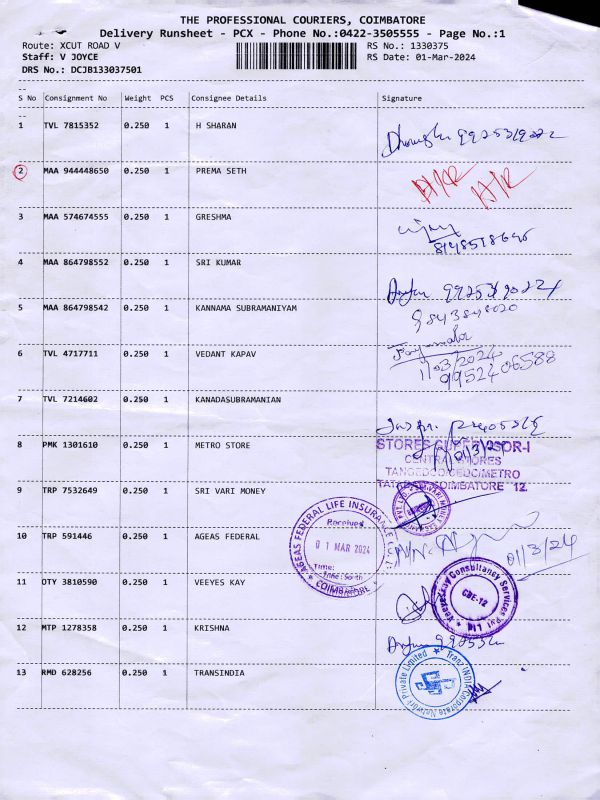 THE PROFESSIONAL COURIERS, COIMBATORE
Delivery Runsheet - PCX - Phone No.:0422-3505555 - Page No.:1
Route: XCUT ROAD V RS No.: 1330375
Staff: V JOYCE RS Date: 01-Mar-2024
DRS No.: DCJB133037501
S No Consignment No Weight PCS Consignee Details Signature
1 TVL 7815352 0.250 1 H SHARAN
2 MAA 944448650 0.250 1 PREMA SETH
3 MAA 574674555 0.250 1 GRESHMA
4 MAA 864798552 0.250 1 SRI KUMAR
5 MAA 864798542 0.250 1 KANNAMA SUBRAMANIYAM
9843848020
6 TVL 4717711 0.250 1 VEDANT KAPAV
11/03/2024
9952406588
7 TVL 7214602 0.250 1 KANADASUBRAMANIAN
8 PMK 1301610 0.250 1 METRO STORE
STORES SUPERVISOR-I
CENTRAL STORES
TANGEDCO/CEDC/METRO
TATABAD, COIMBATORE 12.
9 TRP 7532649 0.250 1 SRI VARI MONEY
10 TRP 591446 0.250 1 AGEAS FEDERAL
AGEAS FEDERAL LIFE INSURANCE
Received
01 MAR 2024
Time:
COIMBATORE
01/3/24
11 OTY 3810590 0.250 1 VEEYES KAY
Veeyeskay Consultancy Services Pvt Ltd
CBE-12
12 MTP 1278358 0.250 1 KRISHNA
13 RMD 628256 0.250 1 TRANSINDIA
Trans INDIA Corporate Network Private Limited